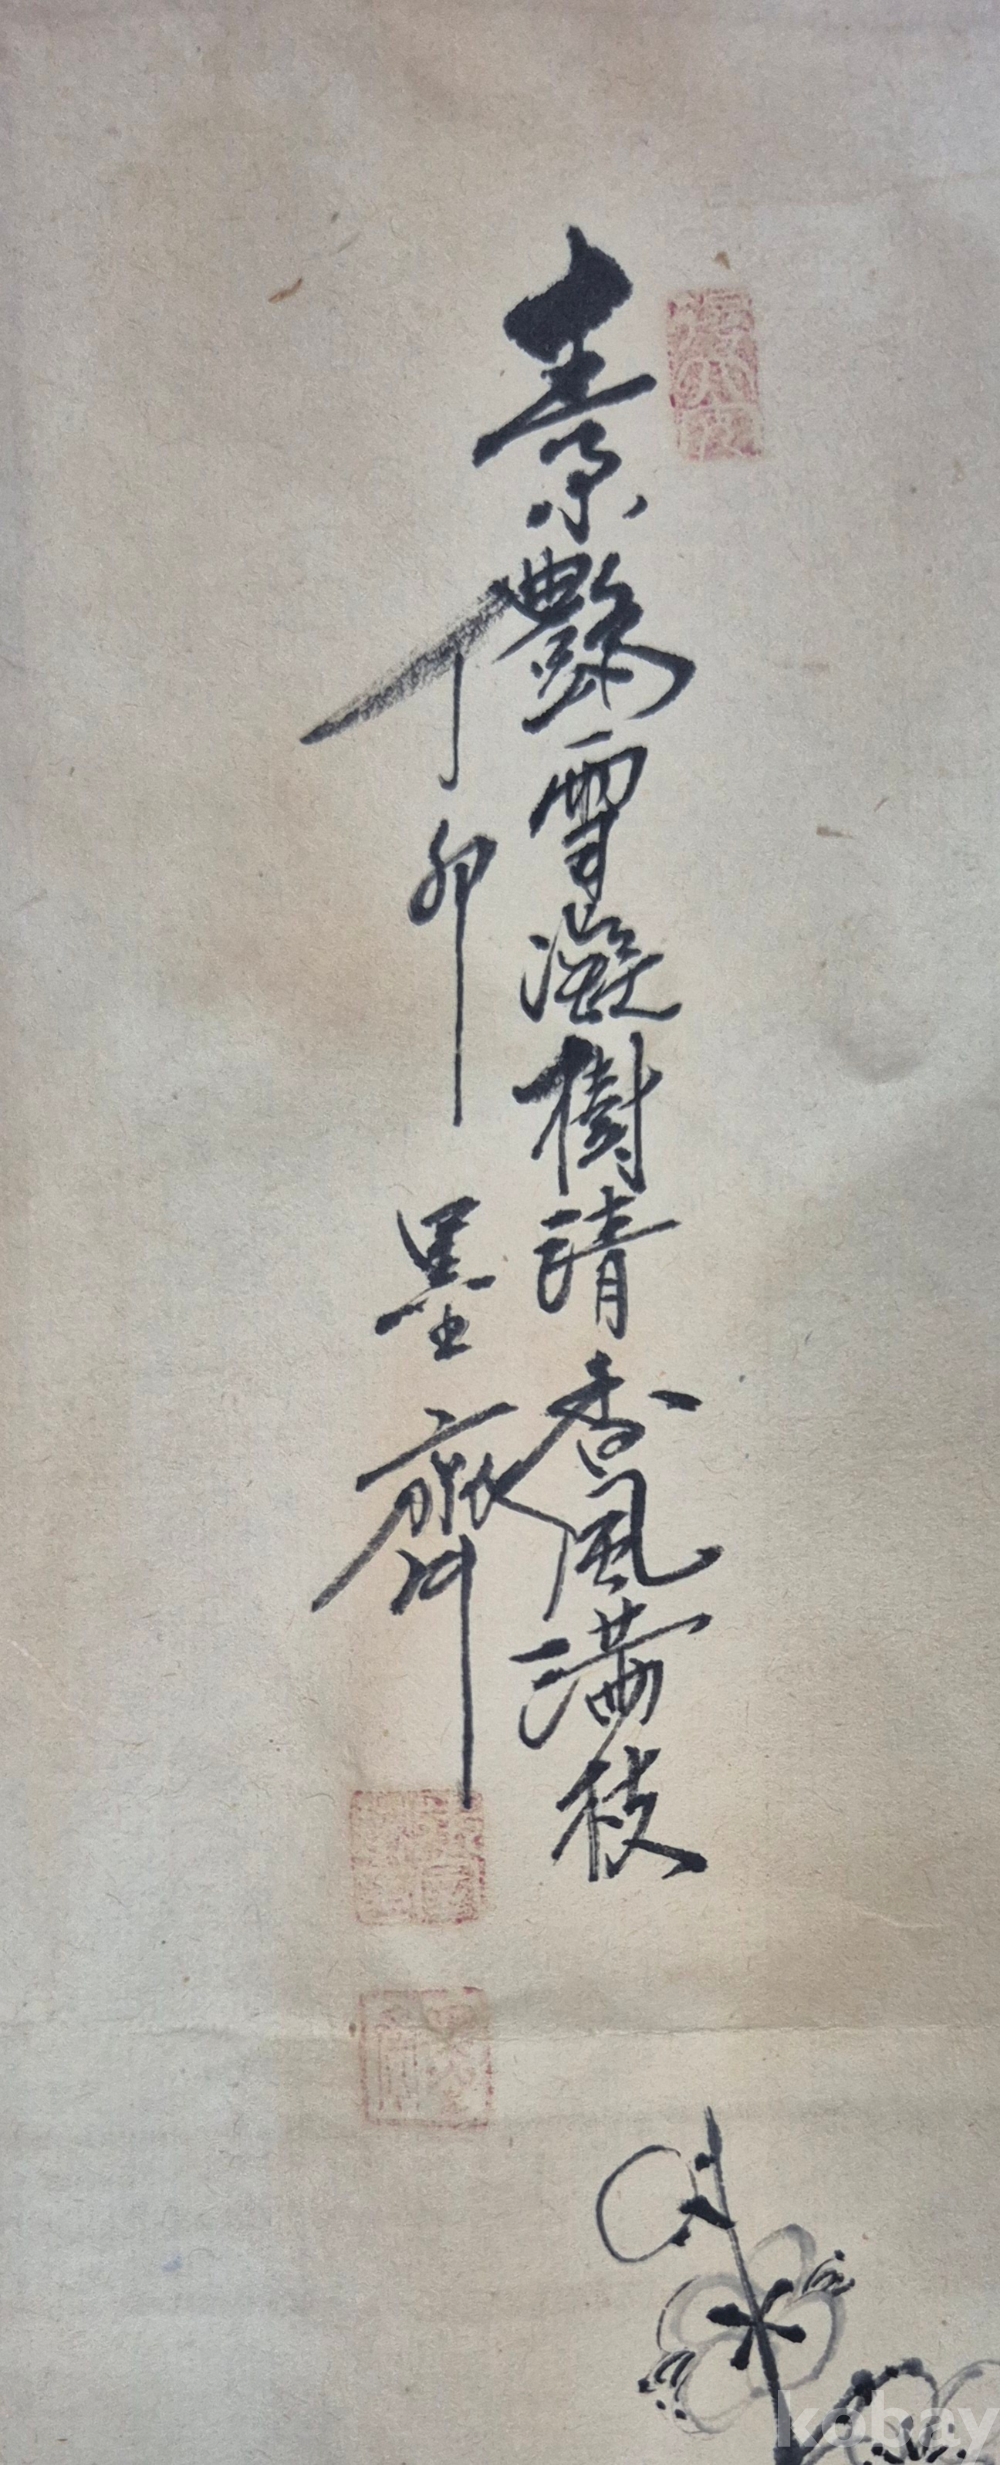 素艶雪凝樹清香風滿枝
丁卯 墨齋
kobay